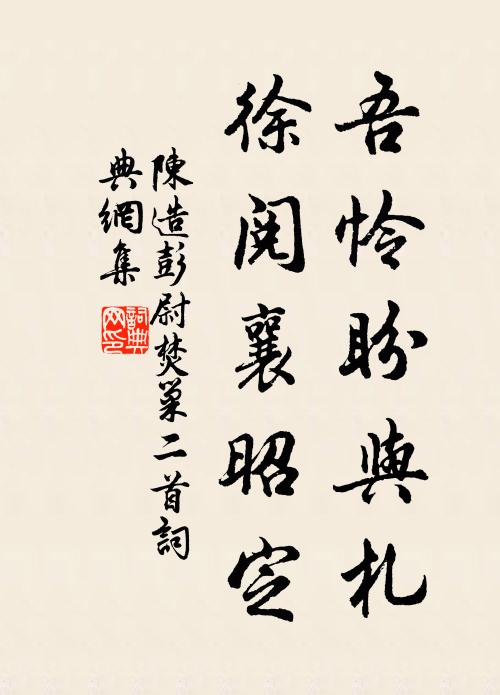 吾怜盼與札
徐閱襄昭定
陳造彭尉焚巢二首詞
典網集
詞典網印